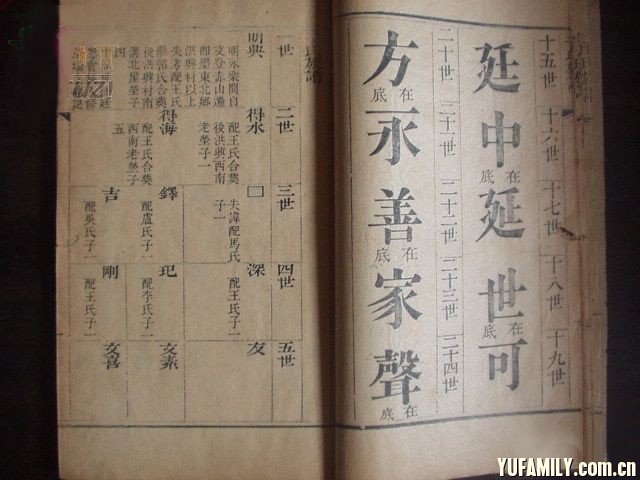 十五世 十六世 十七世 十八世 十九世
延 中 在底 延 世 在底 可
二十世 二十一世 二十二世 二十三世 二十四世
方 在底 永 善 在底 家 聲 在底
一世 二世 三世 四世 五世
明興 得永 □ 深 友
明永樂間自
文登赤山遷
卽墨東北鄉
洪興村以上
失考配王氏
繼郭氏合葬
後洪興村南
溝北屋塋子
四
配王氏合葬
後洪興西南
老塋子一
得海
配王氏合葬
西南老塋子
五
失諱配馬氏
子一
鐸
配盧氏子一
吉
配吳氏子一
配王氏子一
玘
配李氏子一
剛
配王氏子一
文素
文喜
YUFAMILY.com.cn